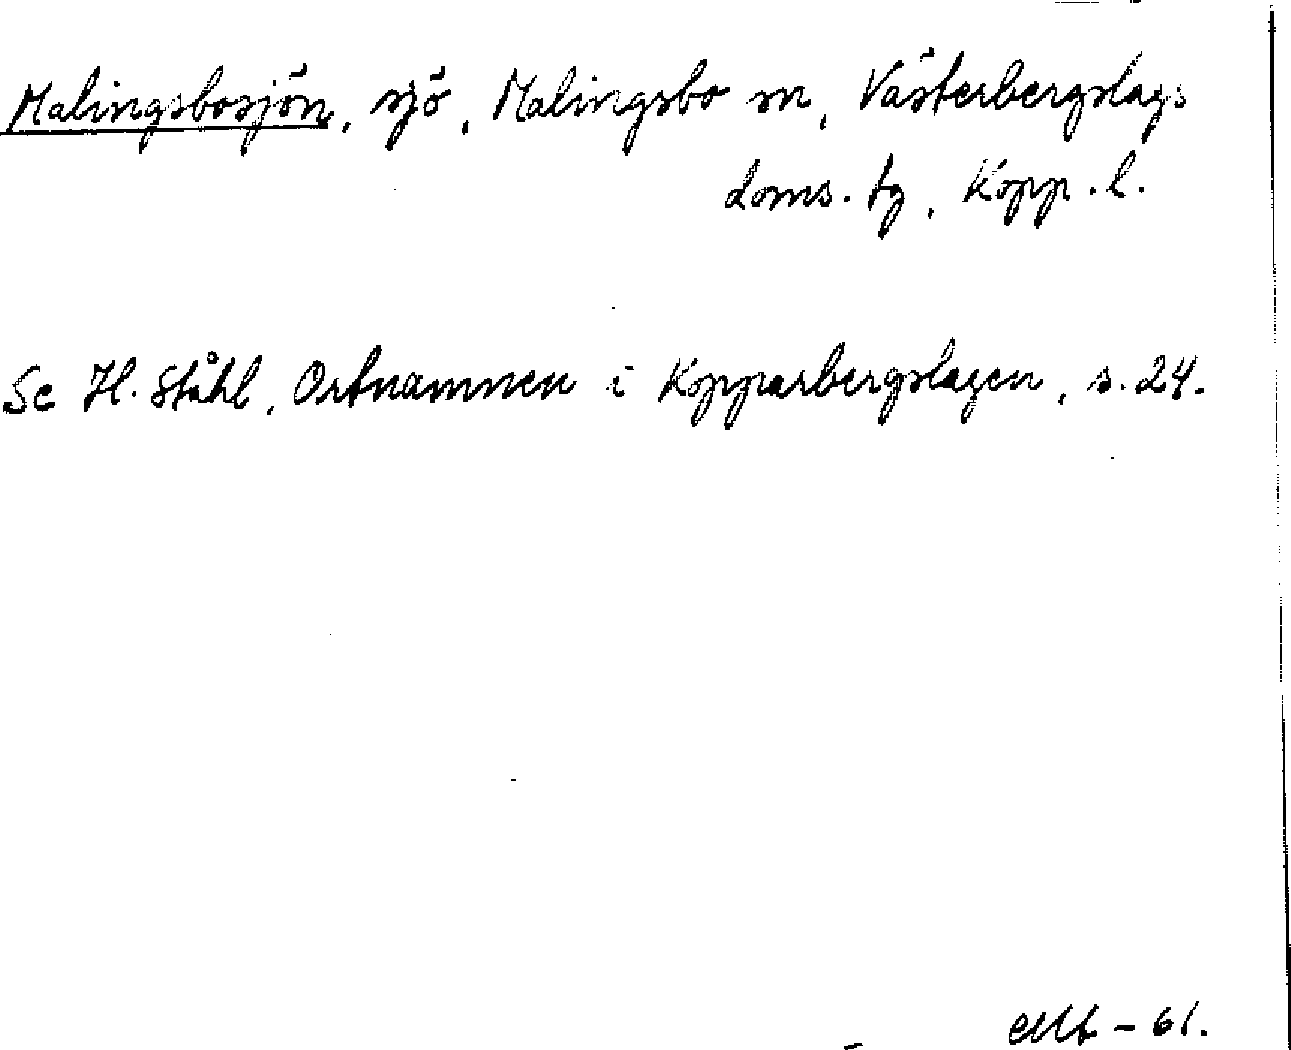 Malingsbosjön, sjö, Malingsbo sn, Västerbergslags
doms. tg, Kopp. l.
Se H. Ståhl, Ortnamnen i Kopparbergslagen, s. 24.
- 61.